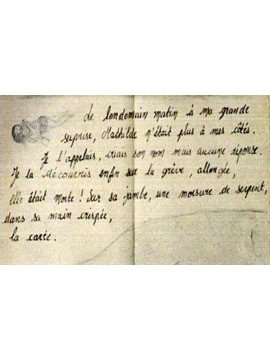 Le lendemain matin à ma grande
surprise, Mathilde n'était plus à mes côtés.
Je l'appelais, criais son nom mais aucune réponse.
Je la découvris enfin sur la grève, allongée,
elle était morte ! Sur sa jambe, une morsure de serpent,
dans sa main crispée,
la carte.